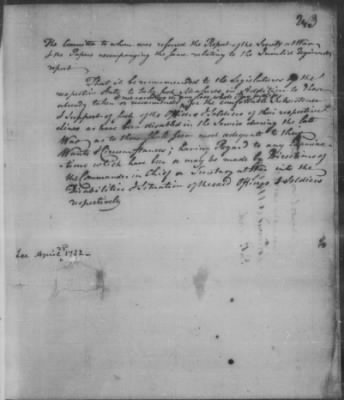 243
The Committee to whom was referred the Report of the Secretary at War
& the Papers accompanying the same relating to the Invalid Regiment
report
That it be recommended to the Legislatures of the
respective States to take such Measures in Addition to those
already taken or recommended for the comfortable
& Support of such of the Officers & Soldiers of their respective
lines as have been disabled in the Service during the late
War, as to them shall seem most adequate to their
Wants & Circumstances; having Regard to any Examina-
tions which have been or may be made by Directions of
the Commander in Chief or Secretary at War into the
Disabilities & Situation of the said Officers & Soldiers
respectively